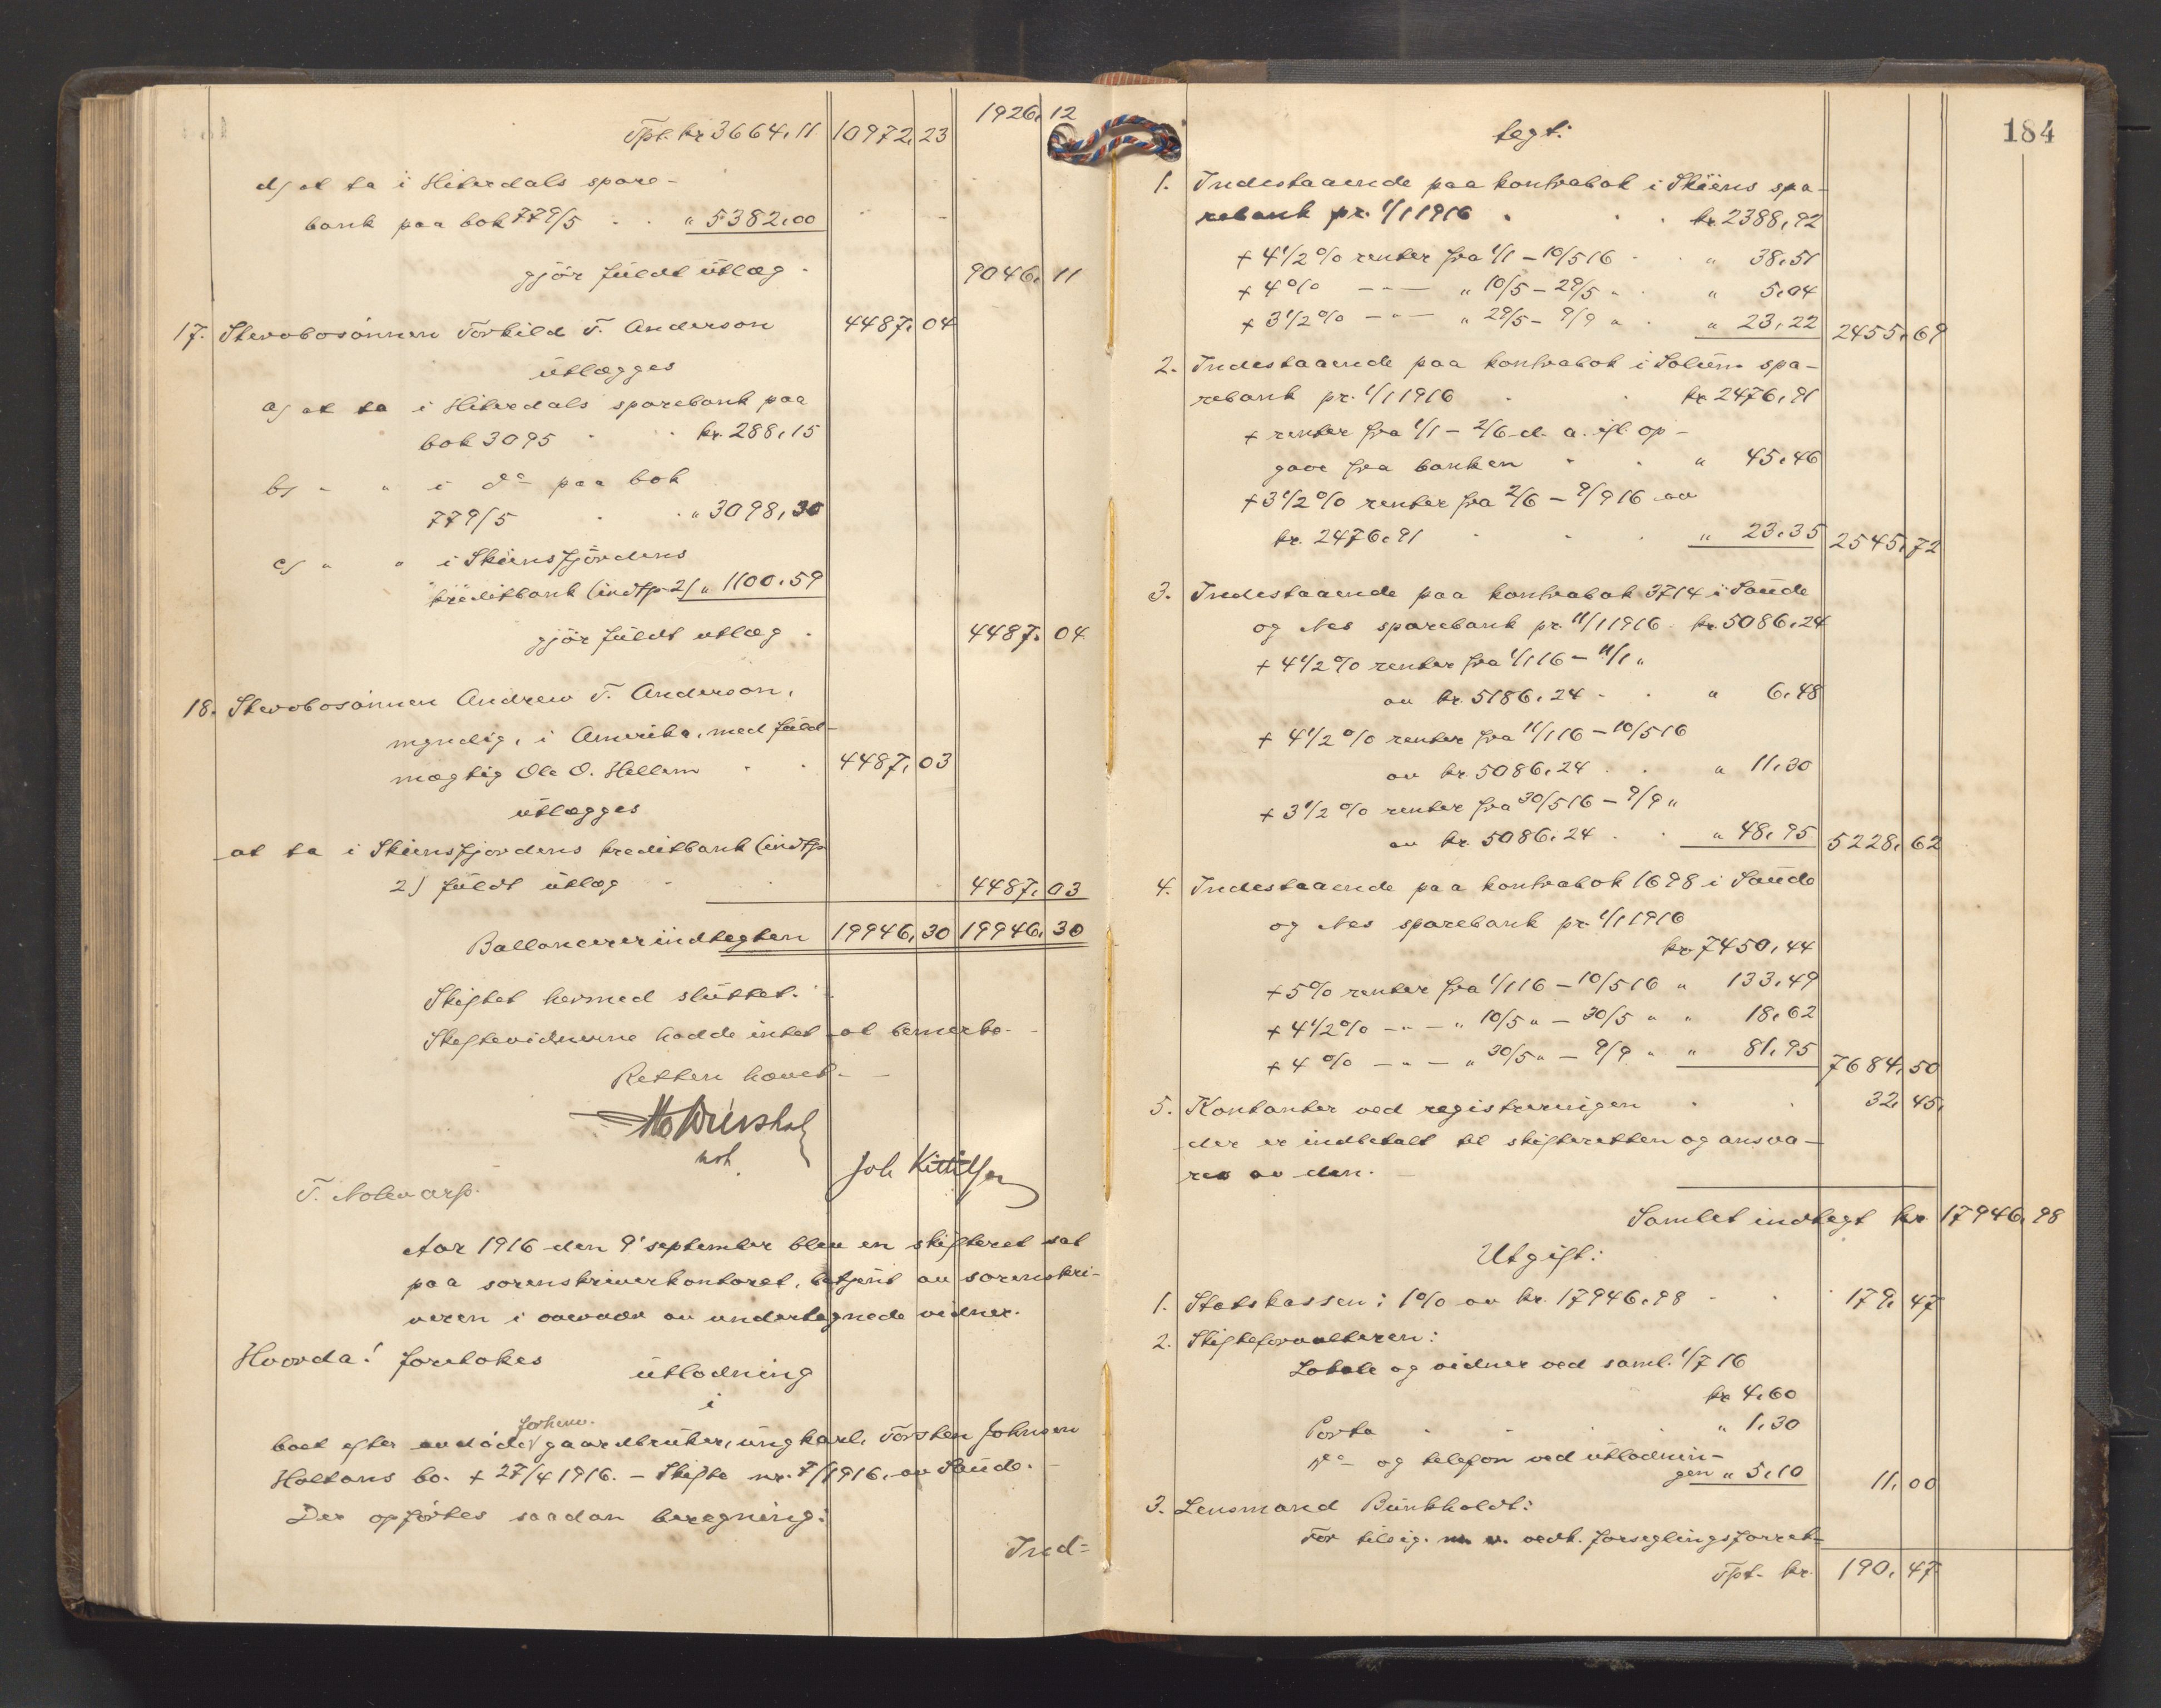 1926, 12
Tpt. kr 3664,11 10972,23
d) at ta i Hiterdals spare-
bank paa bok 779/5 . . " 5382,00
gjör fuldt utlæg . 9046, 11
17. Stervbosönnen Torkild T. Anderson 4487, 04
utlægges
a) at ta i Hiterdals sparebank paa
bok 3095 . . kr. 288,15
b) " " i do paa bok
779/5 . . " 3098,30
c) " " i Skiensfjördens
kreditbank (indtp. 2) " 1100,59
gjör fuldt utlæg . 4487. 04
18. Stervbosönnen Andrew T. Anderson,
myndig, i Amerika, med fuld-
mægtig Ole O. Hellem . . 4487, 03
utlægges
at ta i Skiensfjordens kreditbank (indtp.
2) fuldt utlæg . . 4487, 03
Ballancerer indtegten 19946, 30 19946, 30
Skiftet hermed sluttet.
Skiftevidnerne hadde intet at bemerke.
Retten hævet.
Joh Kittilsen
T. Notevarp.
Aar 1916 den 9' september blev en skifteret sat
paa sorenskriverkontoret, betjent av sorenskri-
veren i overvær av undertegnede vidner.
Hvorda! foretokes utlodning
i
forhenv.
boet efter avdöde gaardbruker, ungkarl, Torsten Johnsen
Holtans bo. + 27/4 1916. - Skifte nr. 7/1916, av Saude.
Der opförtes saadan beregning:
Ind=
184
tegt:
1. Indestaaende paa kontrabok i Skiens spa-
rebank pr. 1/1 1916 . . . kr. 2388,92
+ 4 1/2 % renter fra 1/1 - 10/5 16 . . " 38,51
+ 4 % - " - " 10/5 - 29/5 " . " 5,04
+ 3 1/2 % - " - " 29/5 - 9/9 " . " 23,22 2455, 69
2. Indestaaende paa kontrabok i Solum spa-
rebank pr. 1/1 1916 . . kr 2476,91
+ renter fra 1/1 - 2/6 d. a. ifl. op-
gave fra banken . . " 45,46
+ 3 1/2 % renter fra 2/6 - 9/9 16 av
kr. 2476,91 . . . " 23,35 2545, 72
3. Indestaaende paa kontrabok 3714 i Saude
og Nes sparebank pr. 11/1 1916 . kr. 5086,24
+ 4 1/2 % renter fra 1/1 16 - 11/1 "
av kr. 5186,24 . . " 6,48
+ 4 1/2 % renter fra 11/1 16 - 10/5 16
av kr. 5086,24 . . " 11,30
+ 3 1/2 % renter fra 30/5 16 - 9/9 "
av kr. 5086,24 . . " 48,95 5228, 62
4. Indestaaende paa kontrabok 1698 i Saude
og Nes sparebank pr. 1/1 1916
kr 7450,44
+ 5 % renter fra 1/1 16 - 10/5 16 " 133,49
+ 4 1/2 % - " - " 10/5 " - 30/5 " " 18,62
+ 4 % - " - " 30/5 " - 9/9 " " 81,95 7684, 50
5. Kontanter ved registreringen . . 32, 45,
der er indbetalt til skifteretten og ansva-
res av den.
Samlet indtegt kr 17946, 98
Utgift:
1. Statskassen: 1 % av kr. 17946,98 . . 179, 47
2. Skifteforvalteren:
Lokale og vidner ved saml. 1/7 16
kr 4,60
Porto . . . " 1,30
do og telefon ved utlodnin-
gen " 5,10 11, 00
3. Lensmand Bunkholdt:
For tilsig. m. v. vedk. forseglingsforret-
Tpt. kr. 190, 47